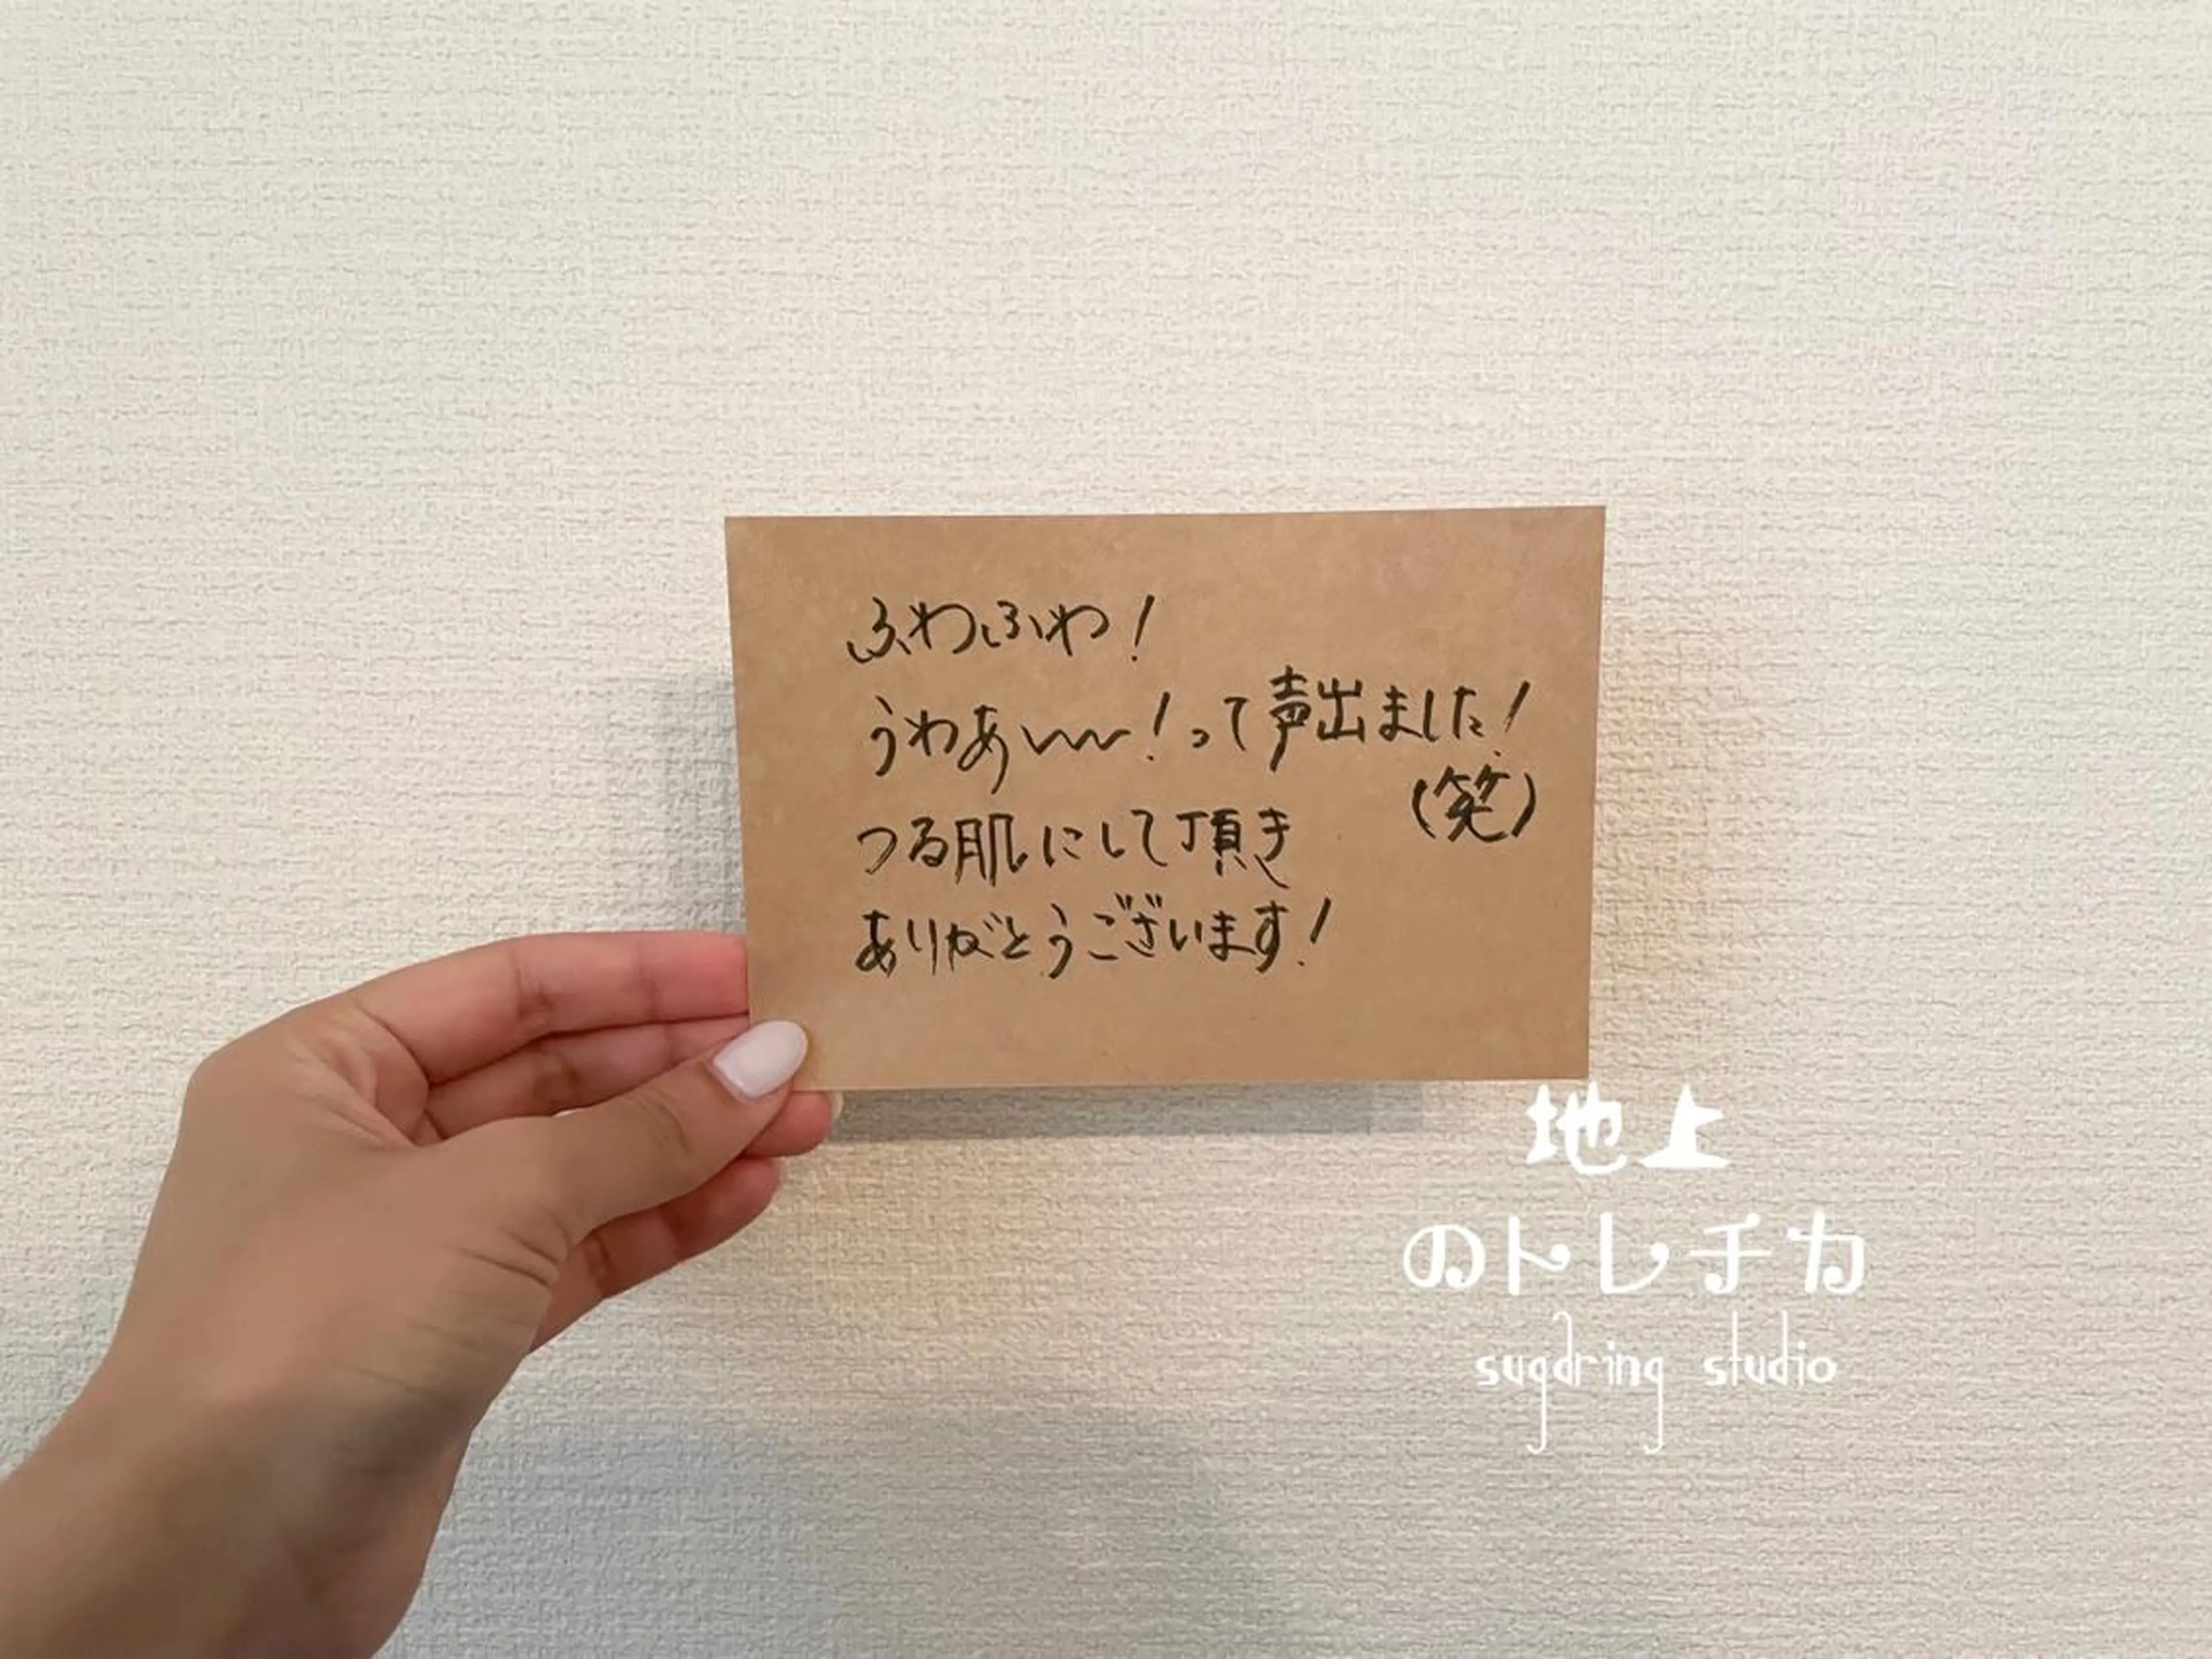 ふわふわ!
うわあ〜〜!って声出ました!
(笑)
つる肌にして頂き
ありがとうございます!
地上
のトレチカ
sugdring studio